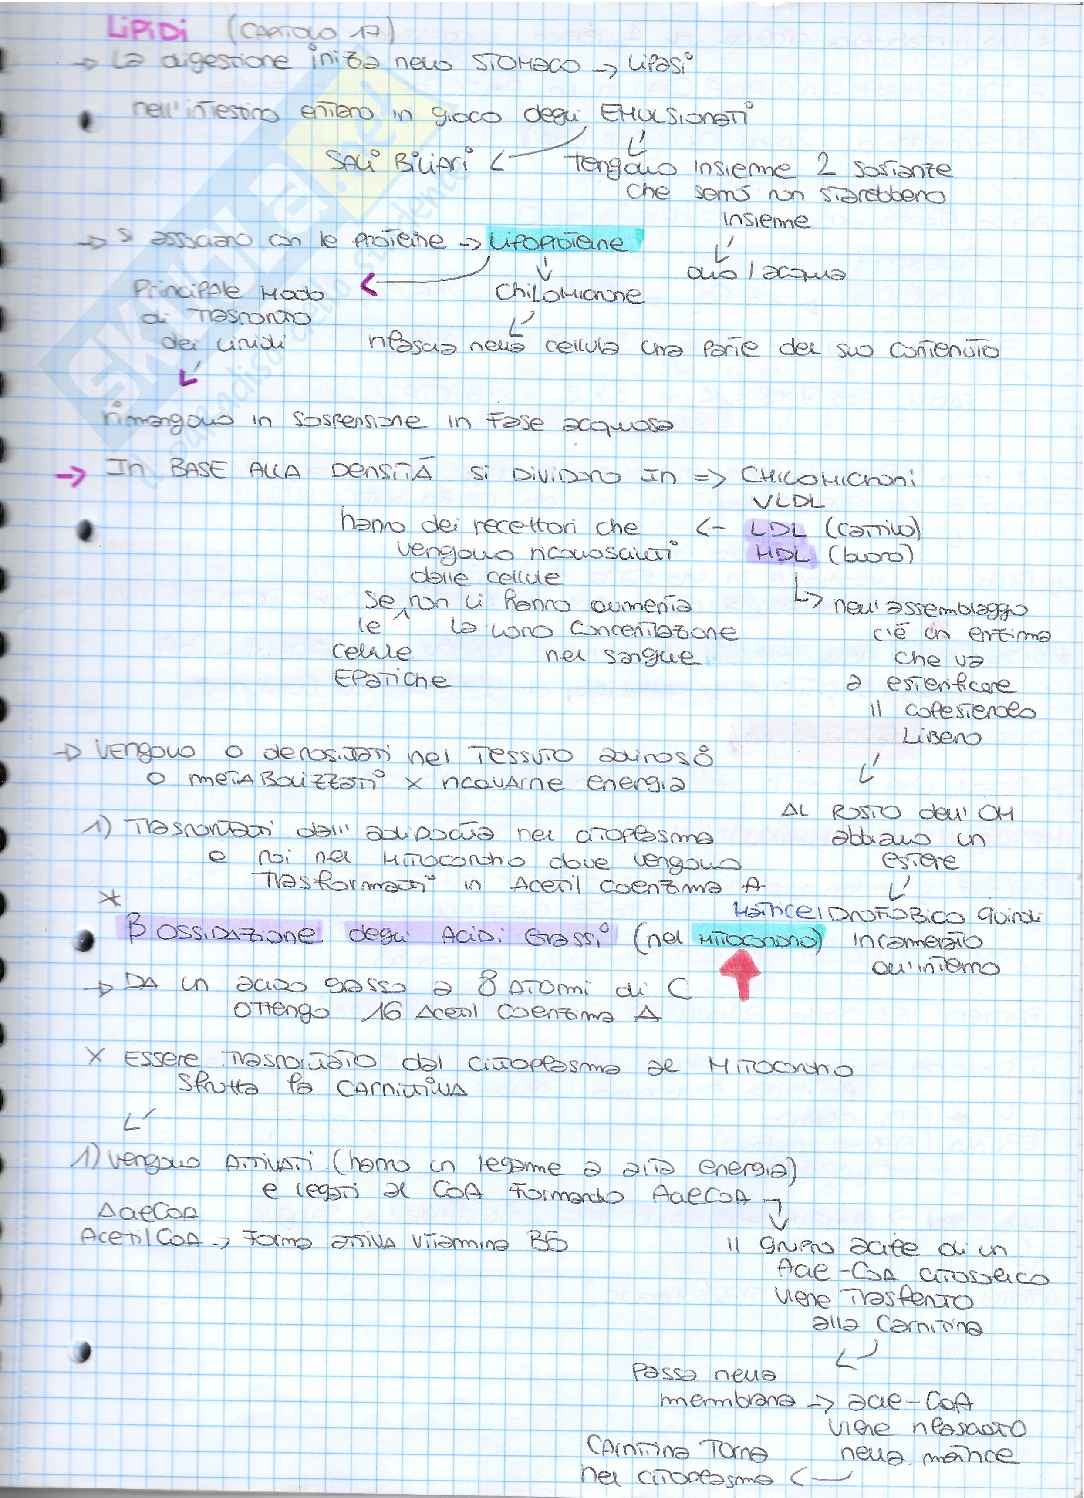 LIPIDI (CAPITOLO 17)
→ La digestione inizia nello STOMACO → lipasi
nell'intestino entrano in gioco degli EMULSIONATI
SALI BILIARI ← tengono insieme 2 sostanze
che sennò non starebbero
insieme
olio/acqua
→ si associano con le proteine → Lipoproteine
Principale modo
di trasporto
dei lipidi
Chilomicrone
rilascia nella cellula una parte del suo contenuto
rimangono in sospensione in fase acquosa
→ In BASE ALLA DENSITÀ si dividono in => CHILOMICRONI
VLDL
hanno dei recettori che ← LDL (cattivo)
vengono riconosciuti HDL (buono)
dalle cellule
se non li hanno aumenta
le la loro concentrazione
cellule nel sangue
EPATICHE
nell'assemblaggio
c'è un enzima
che va
a esterificare
il colesterolo
LIBERO
AL POSTO dell'OH
abbiamo un
estere
Matrice idrofobico quindi
incamerato
all'interno
→ Vengono o depositati nel TESSUTO adiposo
o METABOLIZZATI x ricavarne energia
1) Trasportati dall'adipocita nel citoplasma
e poi nel Mitocondrio dove vengono
Trasformati in Acetil Coenzima A
* β OSSIDAZIONE degli ACIDI GRASSI (nel MITOCONDRIO)
→ DA un acido grasso a 8 ATOMI di C
OTTENGO 16 Acetil Coenzima A
x ESSERE TRASPORTATO dal citoplasma al Mitocondrio
sfrutta la CARNITINA
1) vengono ATTIVATI (hanno un legame a alta energia)
e legati al CoA formando AcilCoA
AcilCoA
AcetilCoA → forma attiva vitamina B5
il gruppo acile di un
Acil-CoA citosolico
viene trasferito
alla Carnitina
Passa nella
membrana → acil-CoA
viene rilasciato
nella matrice
CARNITINA TORNA
nel citoplasma ←